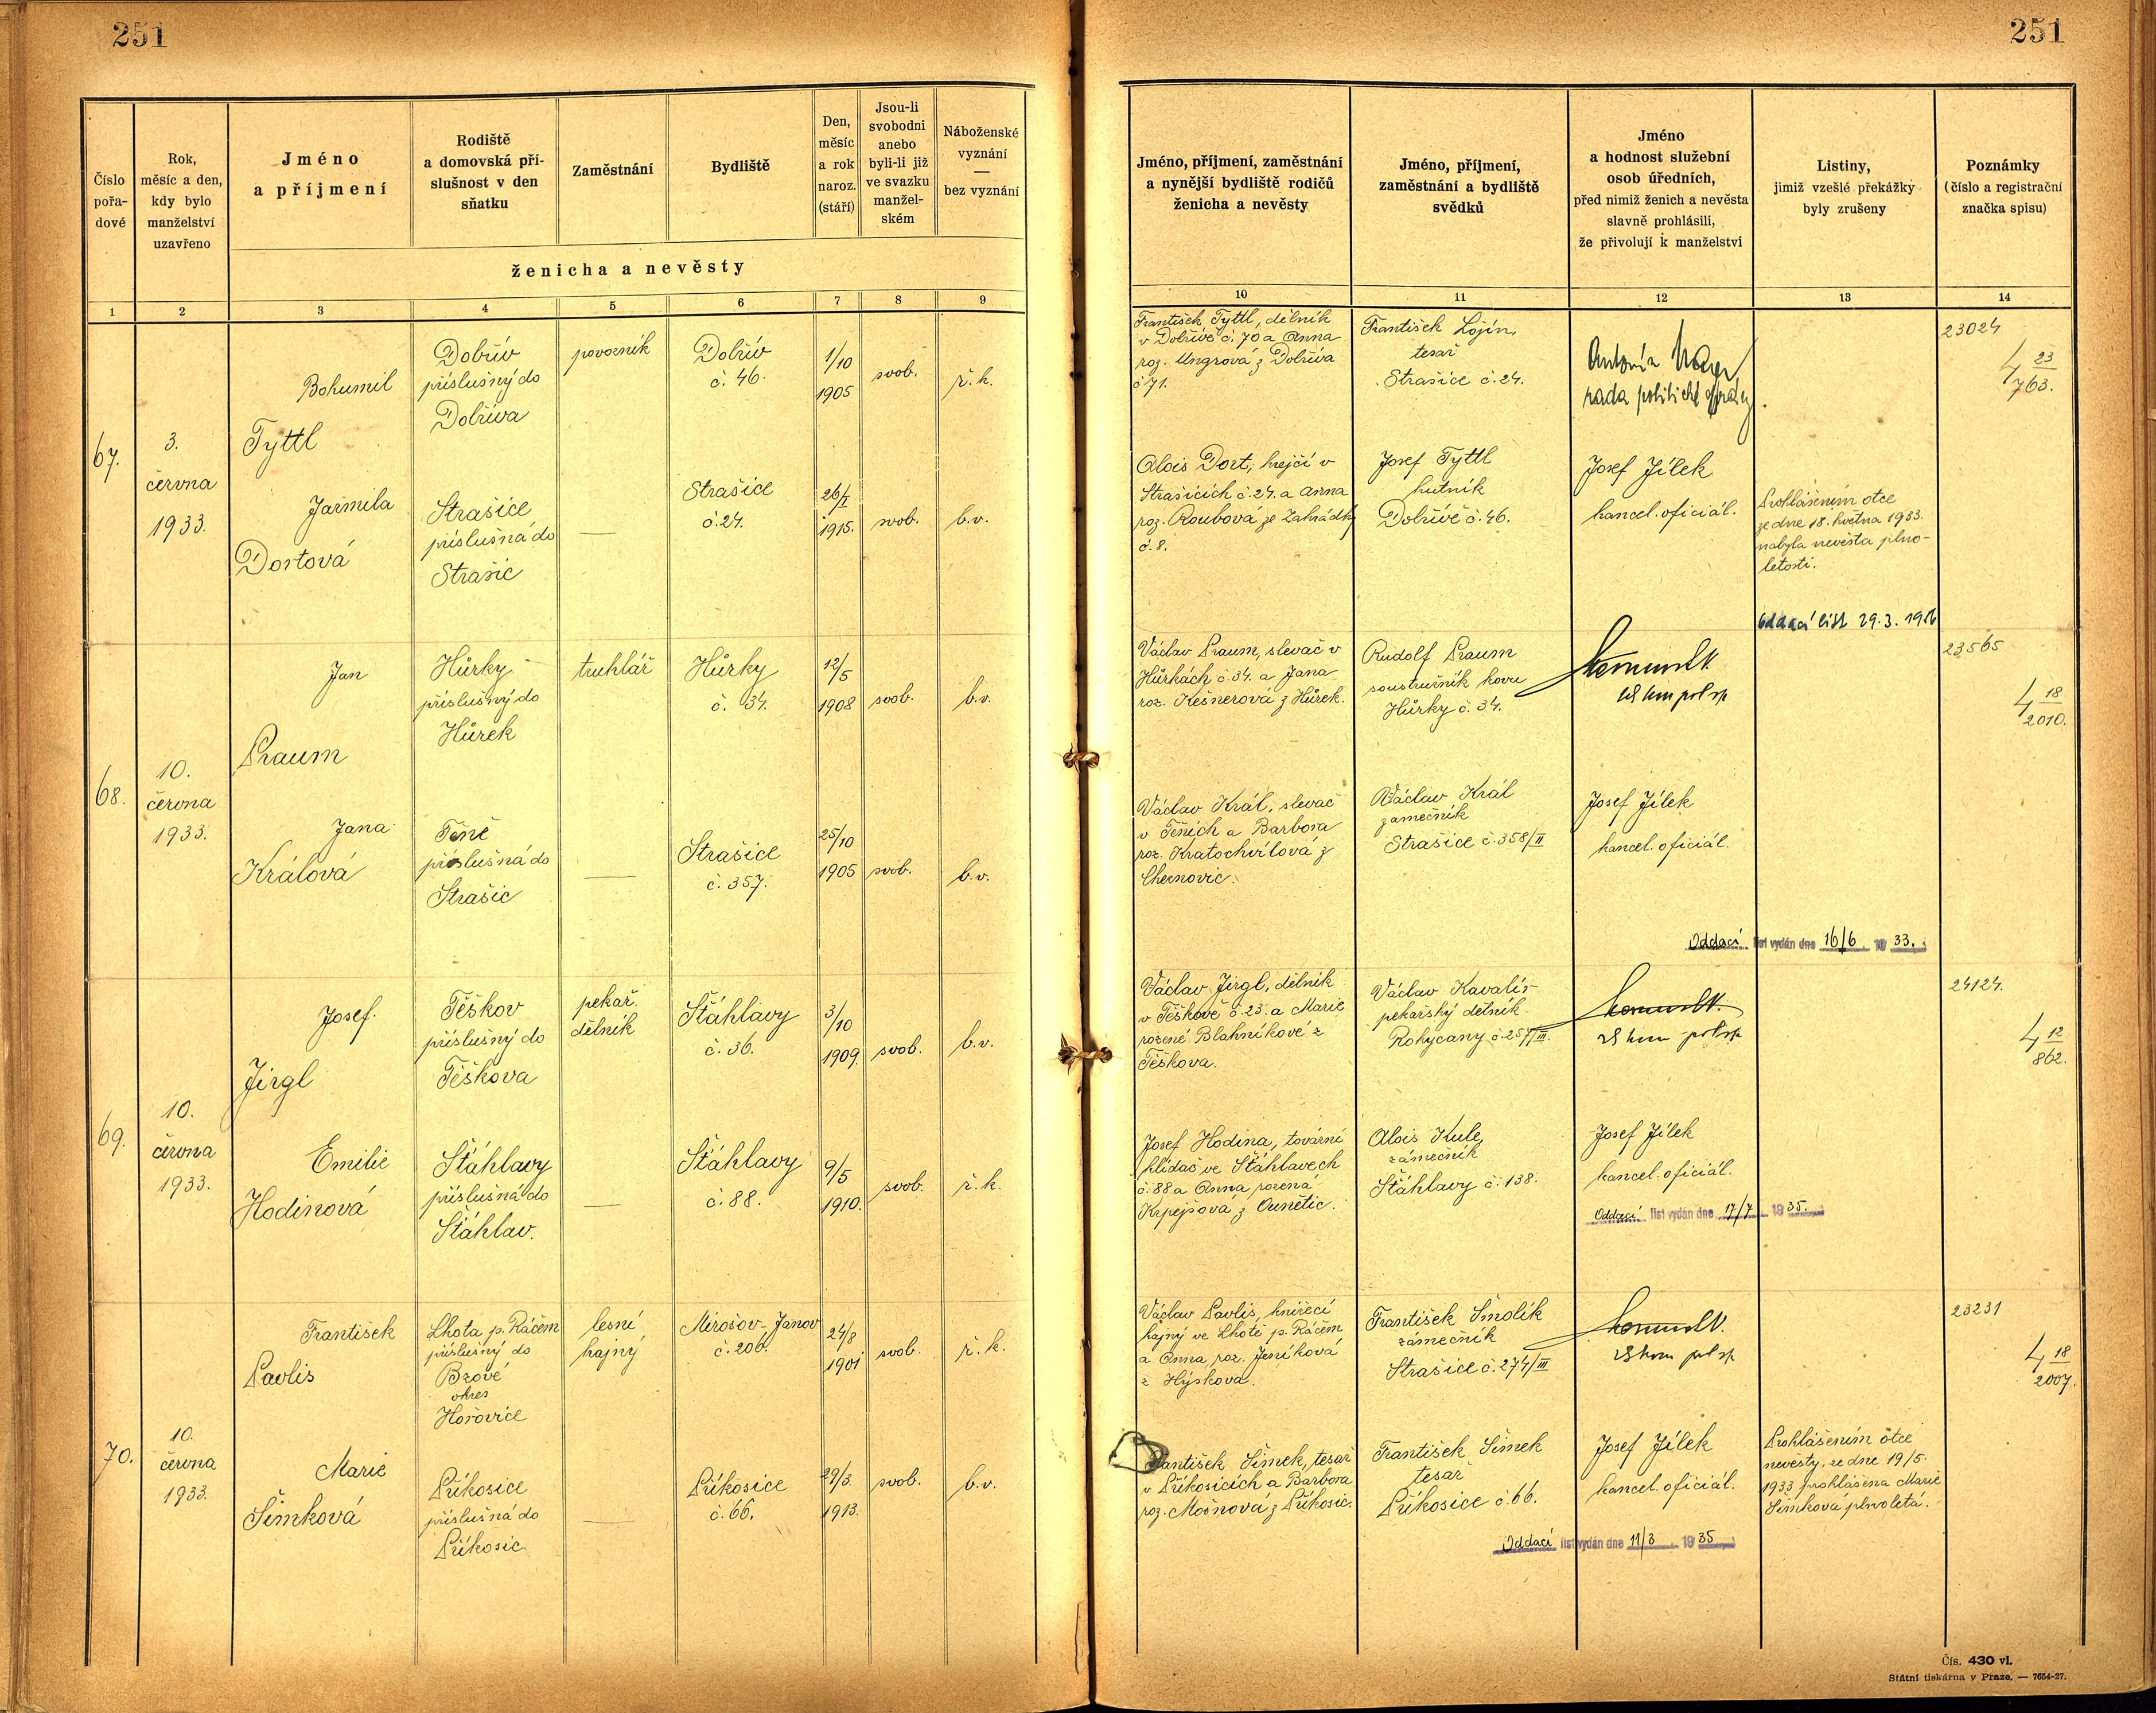 251
251
Číslo
pořa-
dové
Rok,
měsíc a den,
kdy bylo
manželství
uzavřeno
Jméno
a příjmení
Rodiště
a domovská pří-
slušnost v den
sňatku
Zaměstnání
Bydliště
Den,
měsíc
a rok
naroz.
(stáří)
Jsou-li
svobodni
anebo
byli-li již
ve svazku
manžel-
ském
Náboženské
vyznání
—
bez vyznání
ženicha a nevěsty
Jméno, příjmení, zaměstnání
a nynější bydliště rodičů
ženicha a nevěsty
Jméno, příjmení,
zaměstnání a bydliště
svědků
Jméno
a hodnost služební
osob úředních,
před nimiž ženich a nevěsta
slavně prohlásili,
že přivolují k manželství
Listiny,
jimiž vzešlé překážky
byly zrušeny
Poznámky
(číslo a registrační
značka spisu)
1 2 3 4 5 6 7 8 9
10 11 12 13 14
67.
3.
června
1933.
Bohumil
Tyttl
Dobřív
příslušný do
Dobříva
povozník
Dobřív
č. 46.
1/10
1905
svob.
ř.k.
Jarmila
Dortová
Strašice
příslušná do
Strašic
—
Strašice
č. 24.
26/I
1915.
svob.
b.v.
František Tyttl, dělník
v Dobřívě č. 70 a Anna
roz. Ungrová z Dobříva
č 71.
František Lojín,
tesař
Strašice č. 24.
Antonín
rada politické správy.
23024
4 23/763.
Alois Dort, krejčí v
Strašicích č. 24. a Anna
roz. Roubová ze Zahrádky
č. 8.
Josef Tyttl
hutník
Dobřívě č. 46.
Josef Jílek
kancel. oficiál.
Prohlášením otce
ze dne 18. května 1933.
nabyla nevěsta plno-
letosti.
Oddací list 29.3.
68.
10.
června
1933.
Jan
Praum
Hůrky
příslušný do
Hůrek
truhlář
Hůrky
č. 34.
12/5
1908
svob.
b.v.
Jana
Králová
Těně
příslušná do
Strašic
—
Strašice
č. 357.
25/10
1905
svob.
b.v.
Václav Praum, slevač v
Hůrkách č. 34. a Jana
roz. Kešnerová z Hůrek.
Rudolf Praum
soustružník kovu
Hůrky č. 34.
23565
4 18/2010.
Václav Král, slevač
v Těních a Barbora
roz. Kratochvílová z
Cheznovic.
Václav Král
zámečník
Strašice č. 358/II
Josef Jílek
kancel. oficiál.
Oddací list vydán dne 16/6 19 33.
69.
10.
června
1933.
Josef.
Jirgl
Těškov
příslušný do
Těškova
pekař.
dělník
Šťáhlavy
č. 36.
3/10
1909.
svob.
b.v.
Emilie
Hodinová
Šťáhlavy
příslušná do
Šťáhlav.
—
Šťáhlavy
č. 88.
9/5
1910.
svob.
ř.k.
Václav Jirgl, dělník
v Těškově č. 23. a Marie
rozené Blahníkové z
Těškova.
Václav Kavalír
pekařský dělník
Rokycany č. 257/III.
24124.
4 12/862.
Josef Hodina, tovární
hlídač ve Šťáhlavech
č. 88 a Anna rozená
Krpejšová z Ounětic.
Alois Kule,
zámečník
Šťáhlavy č. 138.
Josef Jílek
kancel. oficiál.
Oddací list vydán dne 17/7 19 35.
70.
10.
června
1933.
František
Pavlis
Lhota p. Ráčem
příslušný do
Bzové
okres
Hořovice
lesní
hajný
Mirošov-Janov
č. 206.
24/8
1901
svob.
ř.k.
Marie
Šimková
Příkosice
příslušná do
Příkosic
—
Příkosice
č. 66.
29/3.
1913.
svob.
b.v.
Václav Pavlis, knížecí
hajný ve Lhotě p. Ráčem
a Anna, roz. Jeníková
z Hýskova.
František Smolík
zámečník
Strašice č. 274/III
23231
4 18/2007.
František Šimek, tesař
v Příkosicích a Barbora
roz. Mošnová z Příkosic.
František Šimek
tesař
Příkosice č. 66.
Josef Jílek
kancel. oficiál.
Prohlášením otce
nevěsty, ze dne 19/5.
1933 prohlášena Marie
Šimková plnoletá.
Oddací list vydán dne 11/3 19 35
Čís. 430 vl.
Státní tiskárna v Praze. — 7654-27.